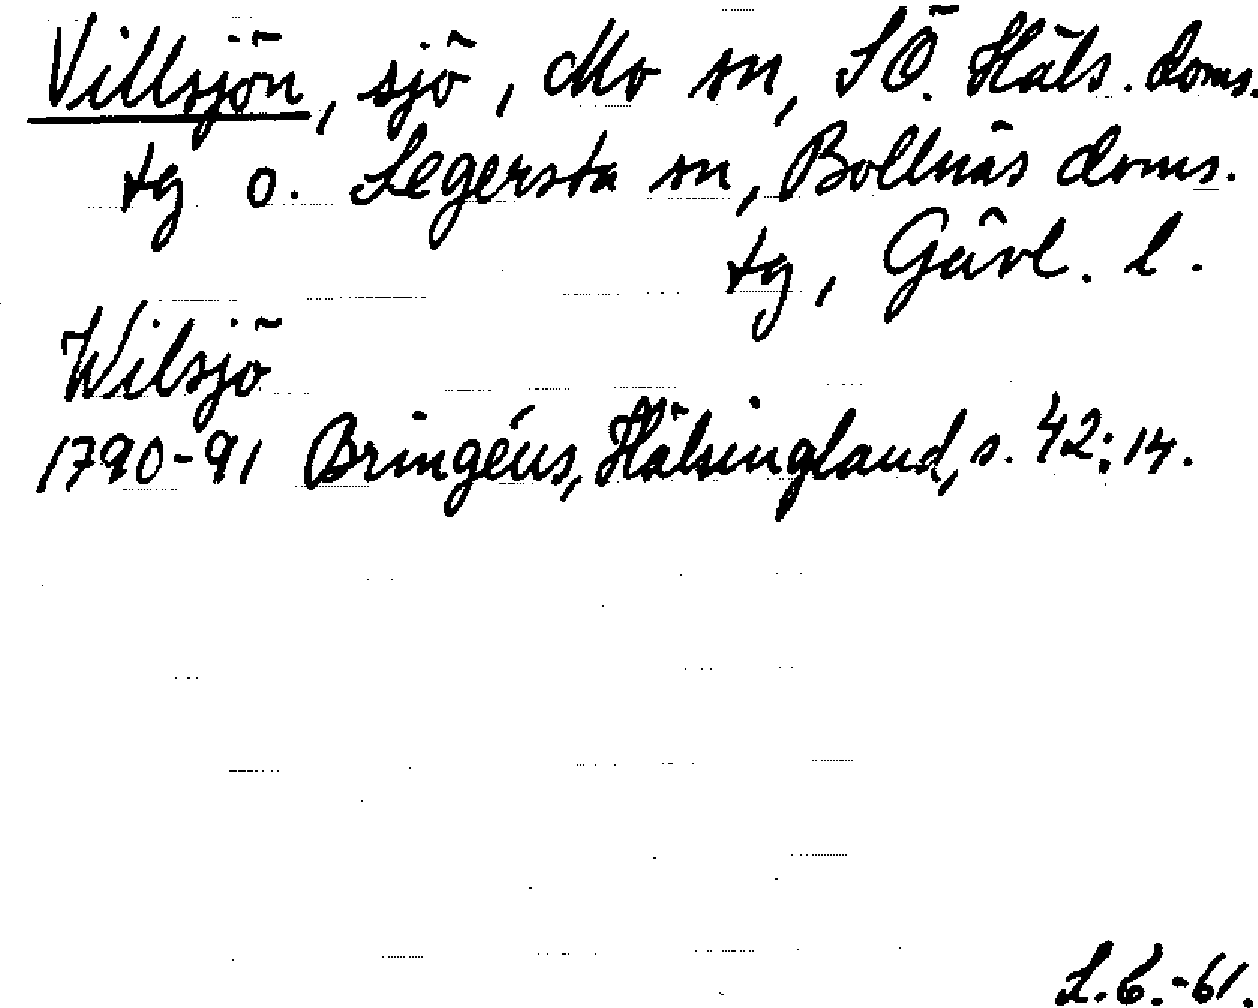 Villsjön, sjö, Mo sn, SÖ. Häls. doms.
tg o. Segersta sn, Bollnäs doms.
tg, Gävl. l.
Wilsjö
1790-91 Bringéus, Hälsingland, s. 42:14.
S.B.-61.